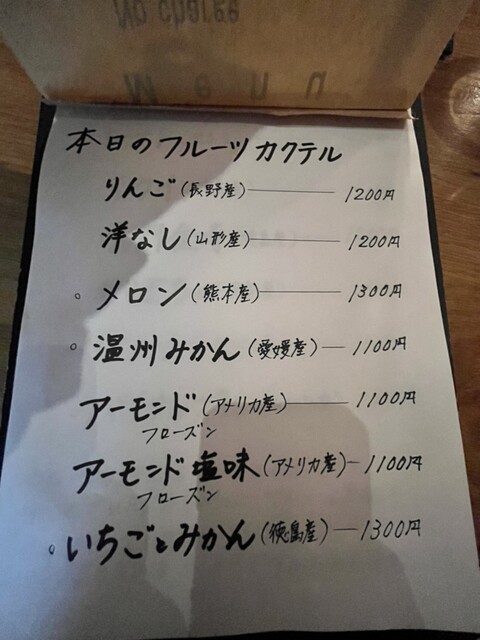 No charge
Menu
本日のフルーツカクテル
りんご(長野産)――1200円
洋なし(山形産)――1200円
。メロン(熊本産)――1300円
。温州みかん(愛媛産)―1100円
アーモンド(アメリカ産)――1100円
フローズン
アーモンド塩味(アメリカ産)―1100円
フローズン
。いちごとみかん(徳島産)―1300円